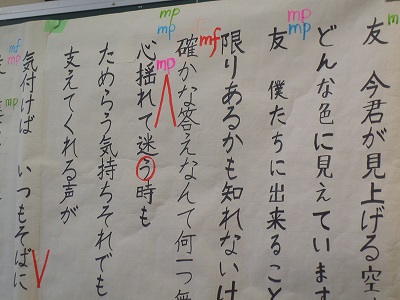 友 今君が見上げる空
どんな色に見えています
友 僕たちに出来ること
限りあるかも知れないけ
確かな答えなんて何一つ無
心揺れて迷う時も
ためらう気持ちそれでも
支えてくれる声が
気付けば いつもそばに
mp
mp
mp
mp
mp
mf
mp
mp
mf
mp